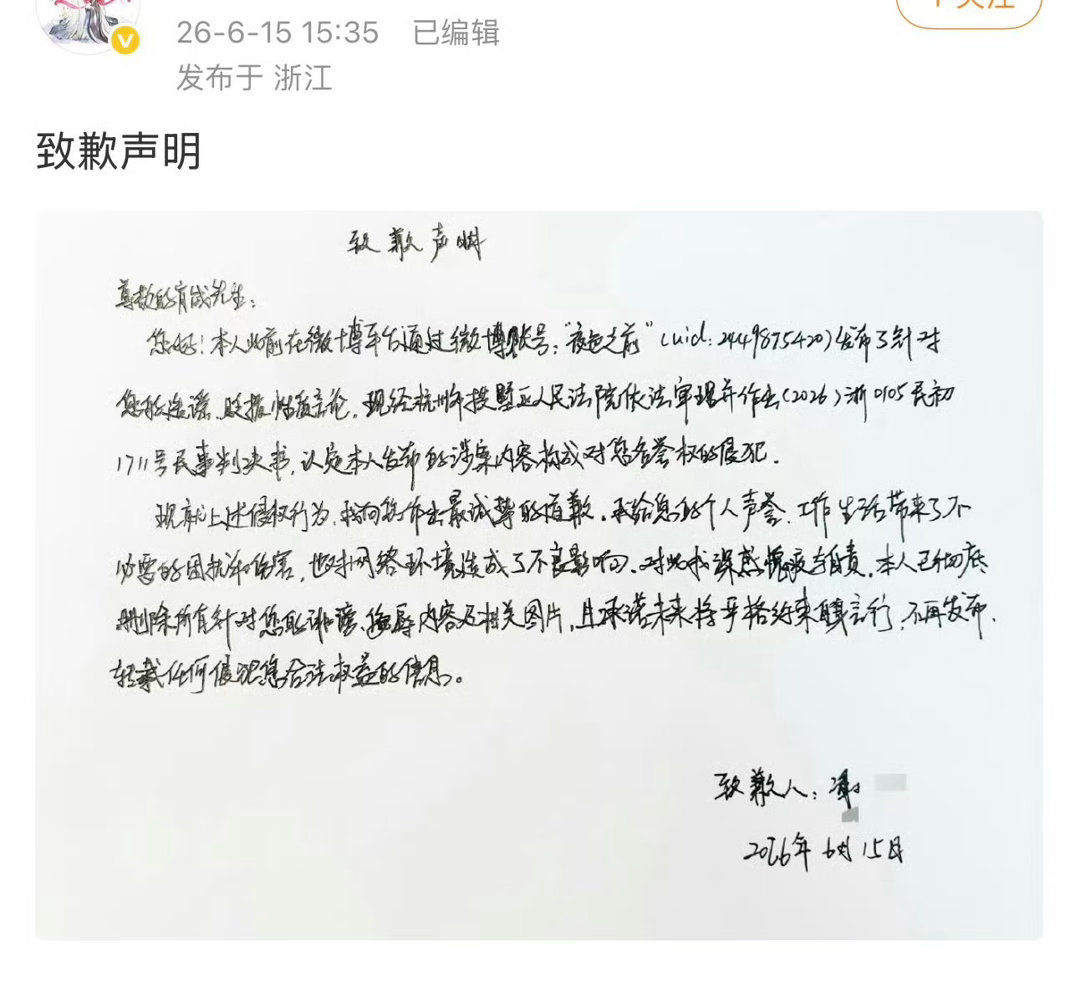 26-6-15 15:35 已编辑
发布于 浙江
致歉声明
致歉声明
尊敬的肖战先生：
您好！本人此前在微博平台通过微博账号：“夜色之前”（uid：2449875420）发布了针对
您的造谣、贬损性质言论，现经杭州市拱墅区人民法院依法审理并作出（2026）浙0105民初
1711号民事判决书，认定本人发布的涉案内容构成对您名誉权的侵犯．
现就上述侵权行为，我向您作出最诚挚的道歉．我给您的个人声誉、工作生活带来了不
必要的困扰和伤害，也对网络环境造成了不良影响．对此我深感愧疚与自责．本人已彻底
删除所有针对您的诽谤、侮辱内容及相关图片，且承诺未来将严格约束自身言行，不再发布、
转载任何侵犯您合法权益的信息。
致歉人：
2026年6月15日